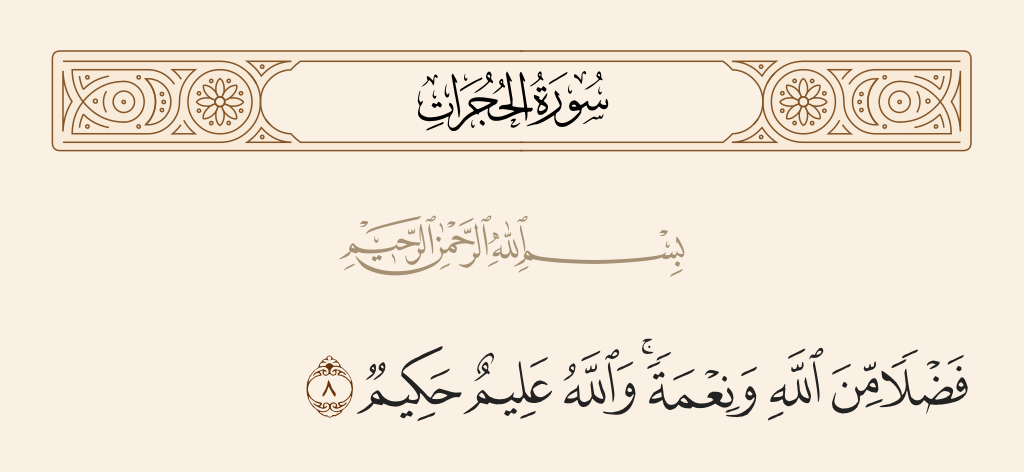 سُورَةُ الحُجُرَاتِ
بِسْمِ ٱللَّهِ ٱلرَّحْمَٰنِ ٱلرَّحِيمِ
فَضْلًا مِّنَ ٱللَّهِ وَنِعْمَةً ۚ وَٱللَّهُ عَلِيمٌ حَكِيمٌ ٨